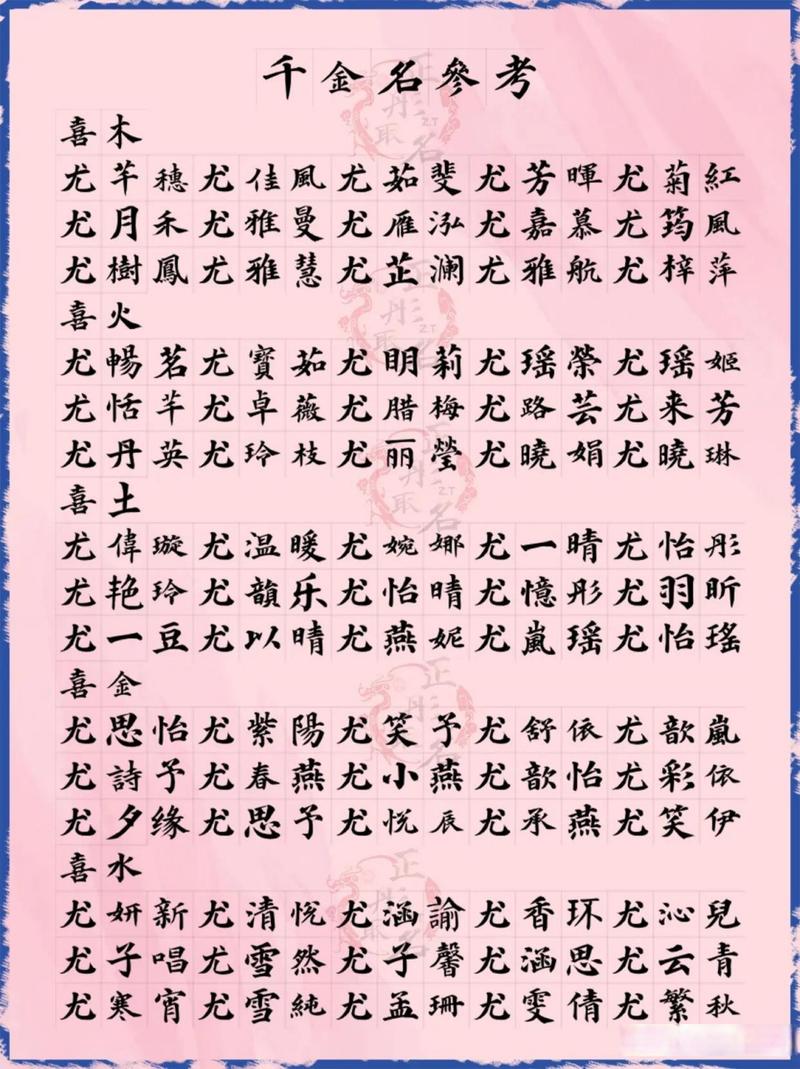 千金名參考
喜木
尤芊穗尤佳風尤茹斐尤芳暉尤菊紅
尤月禾尤雅曼尤雁泓尤嘉慕尤筠風
尤樹鳳尤雅慧尤芷澜尤雅航尤梓萍
喜火
尤暢茗尤寶茹尤明莉尤瑶榮尤瑶姬
尤恬芊尤卓薇尤腊梅尤路芸尤来芳
尤丹英尤玲枝尤丽瑩尤曉娟尤曉琳
喜土
尤偉璇尤温暖尤婉娜尤一晴尤怡彤
尤艳玲尤韻乐尤怡晴尤憶彤尤羽昕
尤一豆尤以晴尤燕妮尤嵐瑶尤怡瑤
喜金
尤思怡尤紫陽尤笑予尤舒依尤歆嵐
尤詩予尤春燕尤小燕尤歆怡尤彩依
尤夕缘尤思予尤悦辰尤承燕尤笑伊
喜水
尤妍新尤清悦尤涵諭尤香环尤沁兒
尤子唱尤雪然尤子馨尤涵思尤云青
尤寒宵尤雪純尤孟珊尤雯倩尤繁秋
正彤取名
ZT